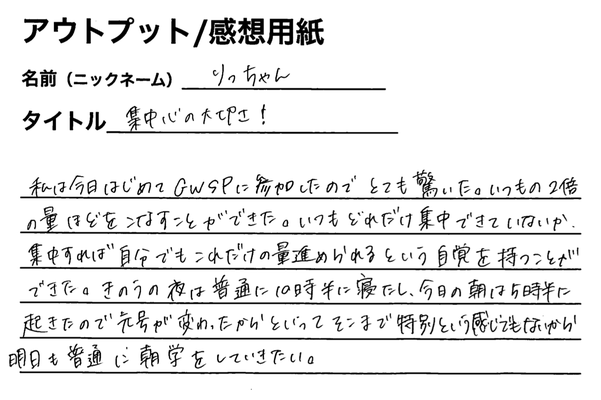 アウトプット/感想用紙
名前（ニックネーム） りっちゃん
タイトル 集中心の大切さ！
私は今日はじめてGWSPに参加したのでとても驚いた。いつもの2倍
の量ほどをこなすことができた。いつもどれだけ集中できていないか、
集中すれば自分でもこれだけの量進められるという自覚を持つことが
できた。きのうの夜は普通に10時半に寝たし、今日の朝は5時半に
起きたので元号が変わったからといってそこまで特別という感じでもないから
明日も普通に朝学をしていきたい。